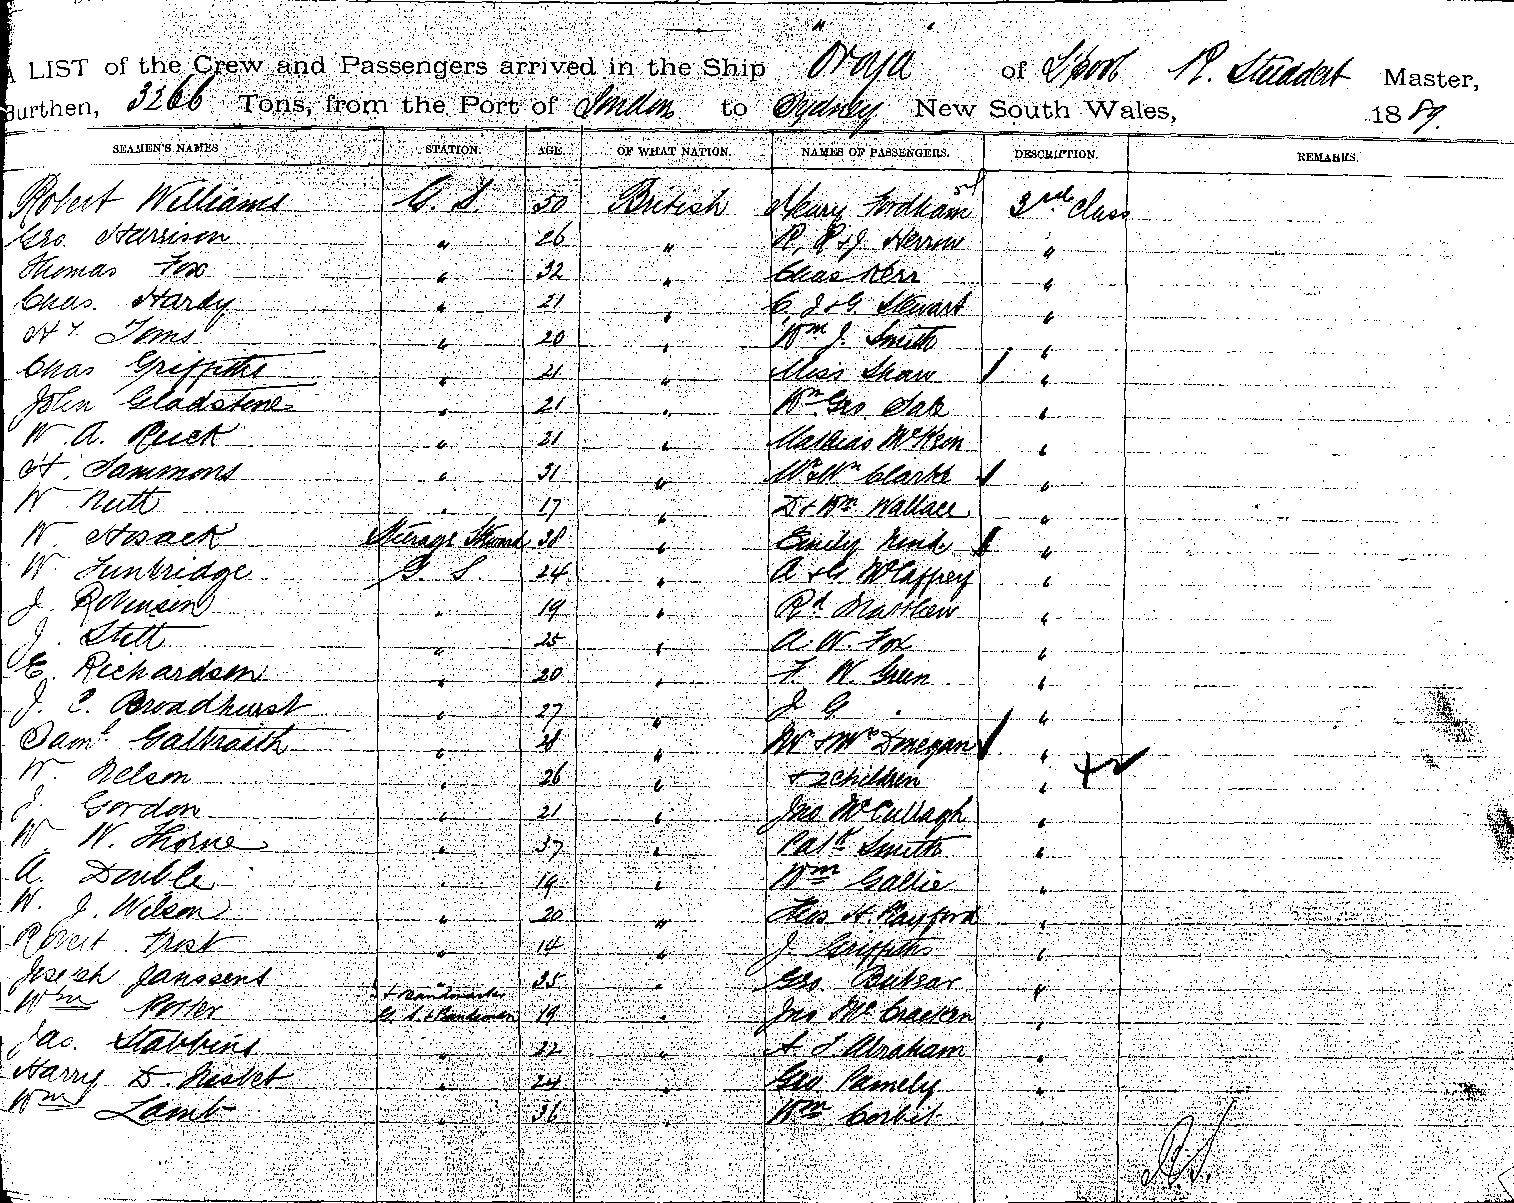 A LIST of the Crew and Passengers arrived in the Ship "Oroya" of L'pool R. Studdert Master,
Burthen, 3266 Tons, from the Port of London to Sydney New South Wales, 1889.
SEAMEN'S NAMES STATION. AGE. OF WHAT NATION. NAMES OF PASSENGERS. DESCRIPTION. REMARKS.
Robert Williams G. S. 50 British Mary Fordham 3rd Class
Geo. Harrison " 26 " R, P & J. Herron "
Thomas Fox " 32 " Chas Kerr "
Chas. Hardy " 21 " C, J & G. Stewart "
Hy Toms " 20 " Wm J. Smith "
Chas Griffiths " 21 " Miss Shaw "
John Gladstone " 21 " Wm Geo "
W. A. Ruck " 21 " Mathias McKeon "
H. Sammons " 31 " Clarke "
W Nuth " 17 " D & Wm Wallace "
W Hosack Steerage Steward 38 " Emily "
W Tunbridge G. S. 24 " A & G McCaffrey "
J. Robinson " 19 " Rd Matthew "
J. Stitt " 25 " A. W. Fox "
E. Richardson " 20 " F. W. Green "
J. C. Broadhurst " 27 " J G "
Saml Galbraith " 28 " Mr & Mrs Donegan "
W. Nelson " 26 " & 2 children "
J. Gordon " 21 " Jno McCullagh "
W. W. Thorne " 37 " Patk Smith "
A. Double " 19 " Wm Gallie "
W. J. Wilson " 20 " Thos H. Rayford "
Robert Frost " 14 " J Griffiths "
Joseph Janssens " 35 " Geo. "
Wm Porter G. S. 19 " Jno McCracken "
Jas. Stabbins " 22 " A S Abraham "
Harry D. Nisbet " 24 " Geo Pamely "
Wm Lamb " 36 " Wm Corbit "
R.S.